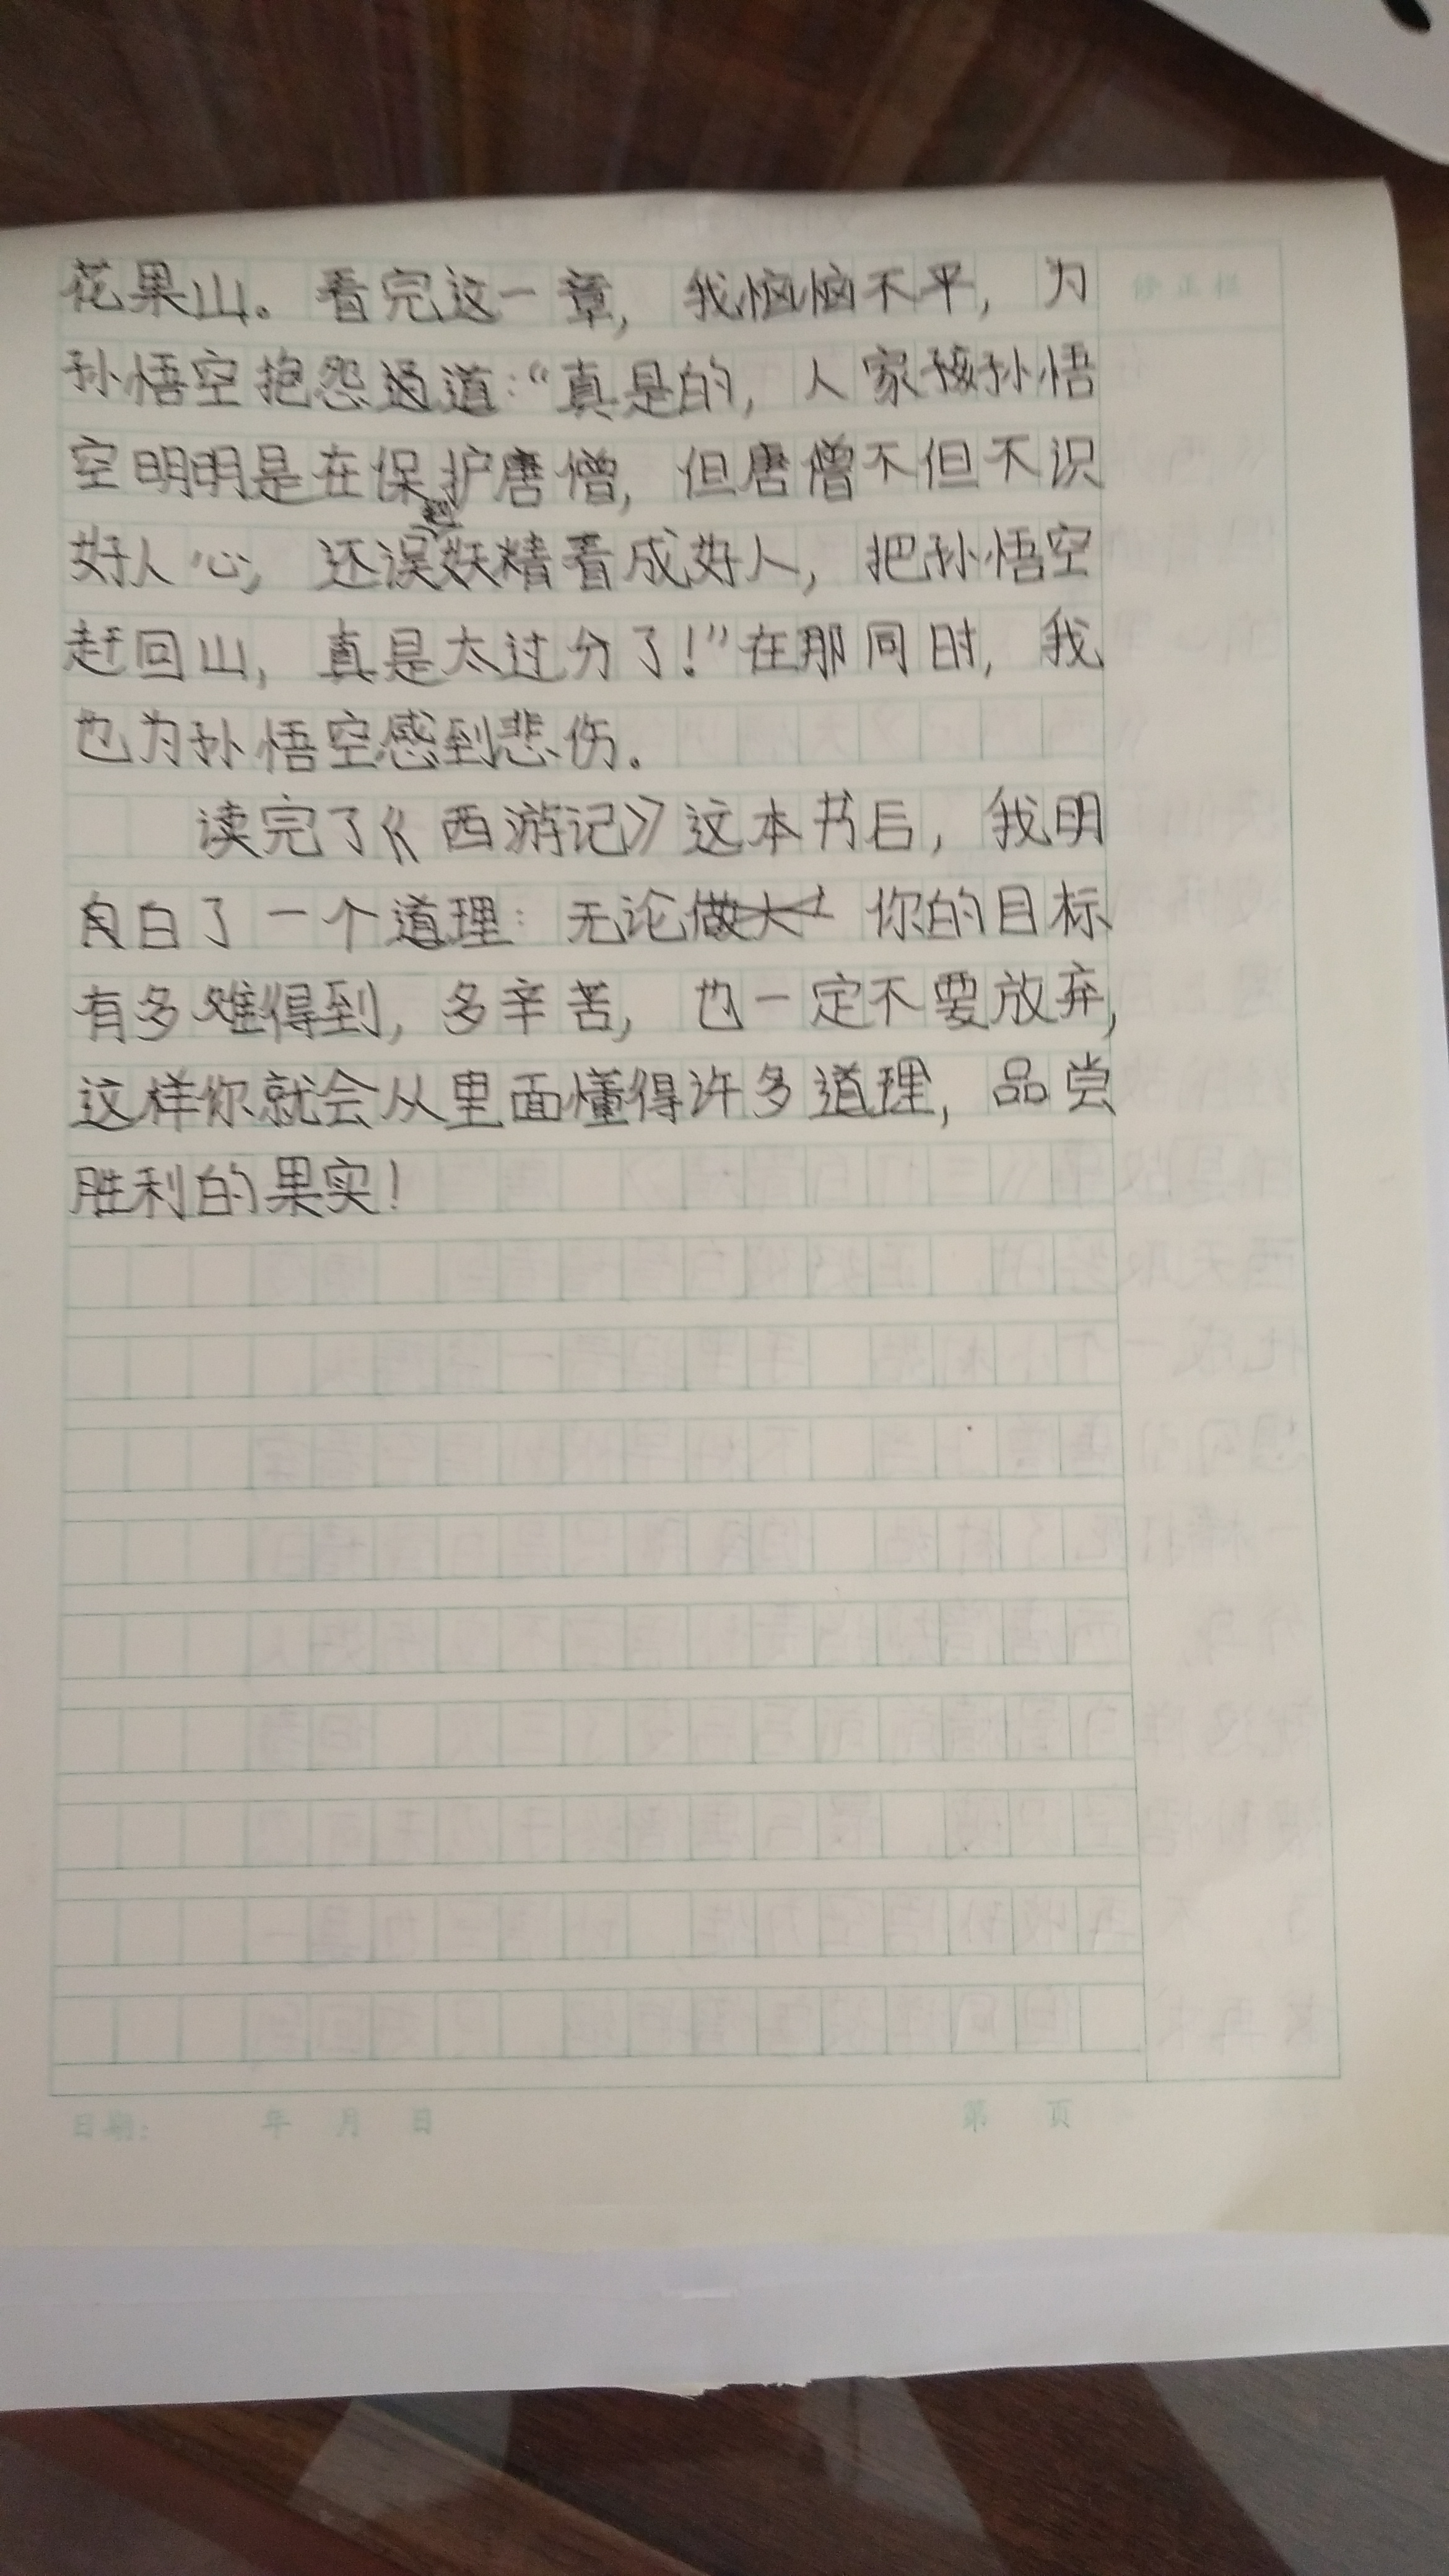 花果山。看完这一章，我恼恼不平，为
修正栏
孙悟空抱怨道：“真是的，人家孙悟
空明明是在保护唐僧，但唐僧不但不识
好人心，还误把妖精看成好人，把孙悟空
赶回山，真是太过分了！”在那同时，我
也为孙悟空感到悲伤。
读完了《西游记》这本书后，我明
白了一个道理：无论你的目标
有多难得到，多辛苦，也一定不要放弃，
这样你就会从里面懂得许多道理，品尝
胜利的果实！
日期： 年 月 日
第 页